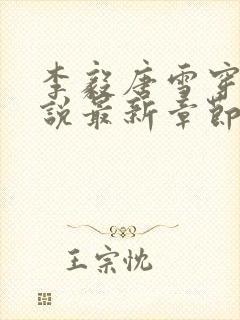 李毅唐雪穿
說最新章節
王宗忱